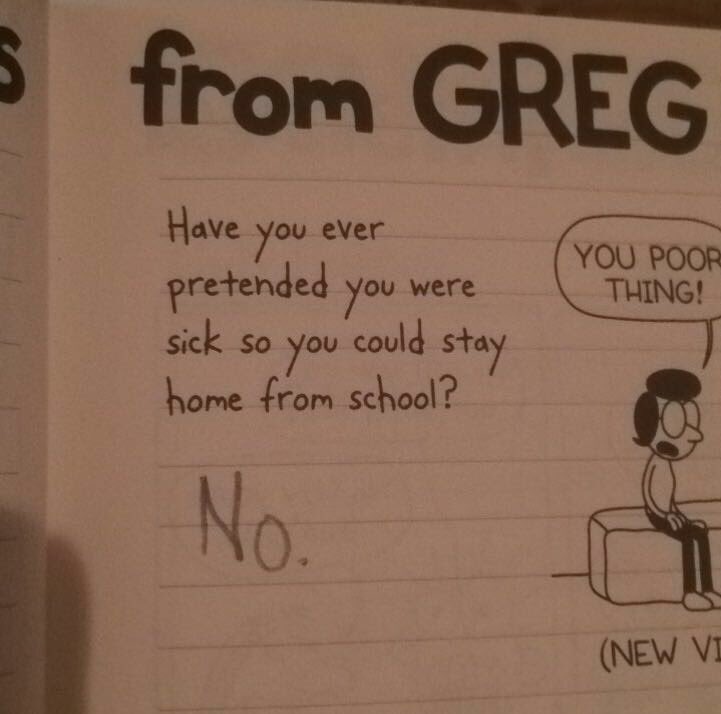 s from GREG
Have you ever
pretended you were
sick so you could stay
home from school?
YOU POOR
THING!
No.
(NEW VI